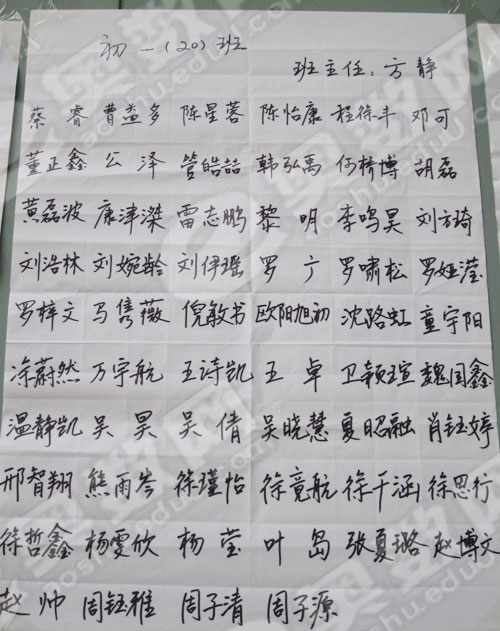 初一(20)班
班主任:方静
蔡睿 曹益多 陈星蓉 陈怡康 程徐丰 邓可
董正鑫 公泽 管皓喆 韩弘禹 何梓博 胡磊
黄磊波 康津滐 雷志鹏 黎明 李鸣昊 刘方琦
刘浩林 刘婉龄 刘伊瑶 罗亣 罗啸松 罗娅滢
罗梓文 马隽薇 倪敏书 欧阳旭初 沈路虹 童宇阳
涂蔚然 万宇航 王诗凯 王卓 卫颖瑄 魏国鑫
温静凯 吴昊 吴倩 吴晓慧 夏昭融 肖钰婷
邢智翔 熊雨岑 徐瑾怡 徐竟航 徐千涵 徐思行
徐哲鑫 杨雯欣 杨莹 叶岛 张夏璐 赵博文
赵帅 周钰雅 周子清 周子源